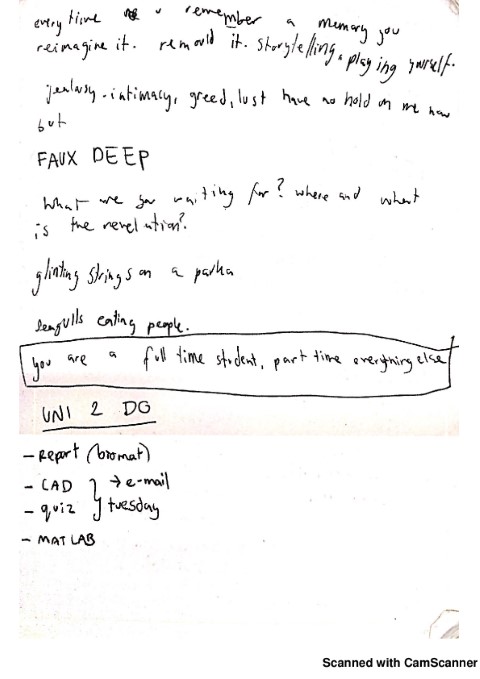 every time u remember a memory you
reimagine it. remould it. storytelling, playing yourself.
jealousy - intimacy, greed, lust have no hold on me now
but
FAUX DEEP
What we waiting for? where and what
is the revelution?
glinting strings on a parka
seagulls eating people.
you are a full time student, part time everything else
UNI 2 DO
- Report (biomat)
- CAD } → e-mail
- quiz } tuesday
- MATLAB
Scanned with CamScanner